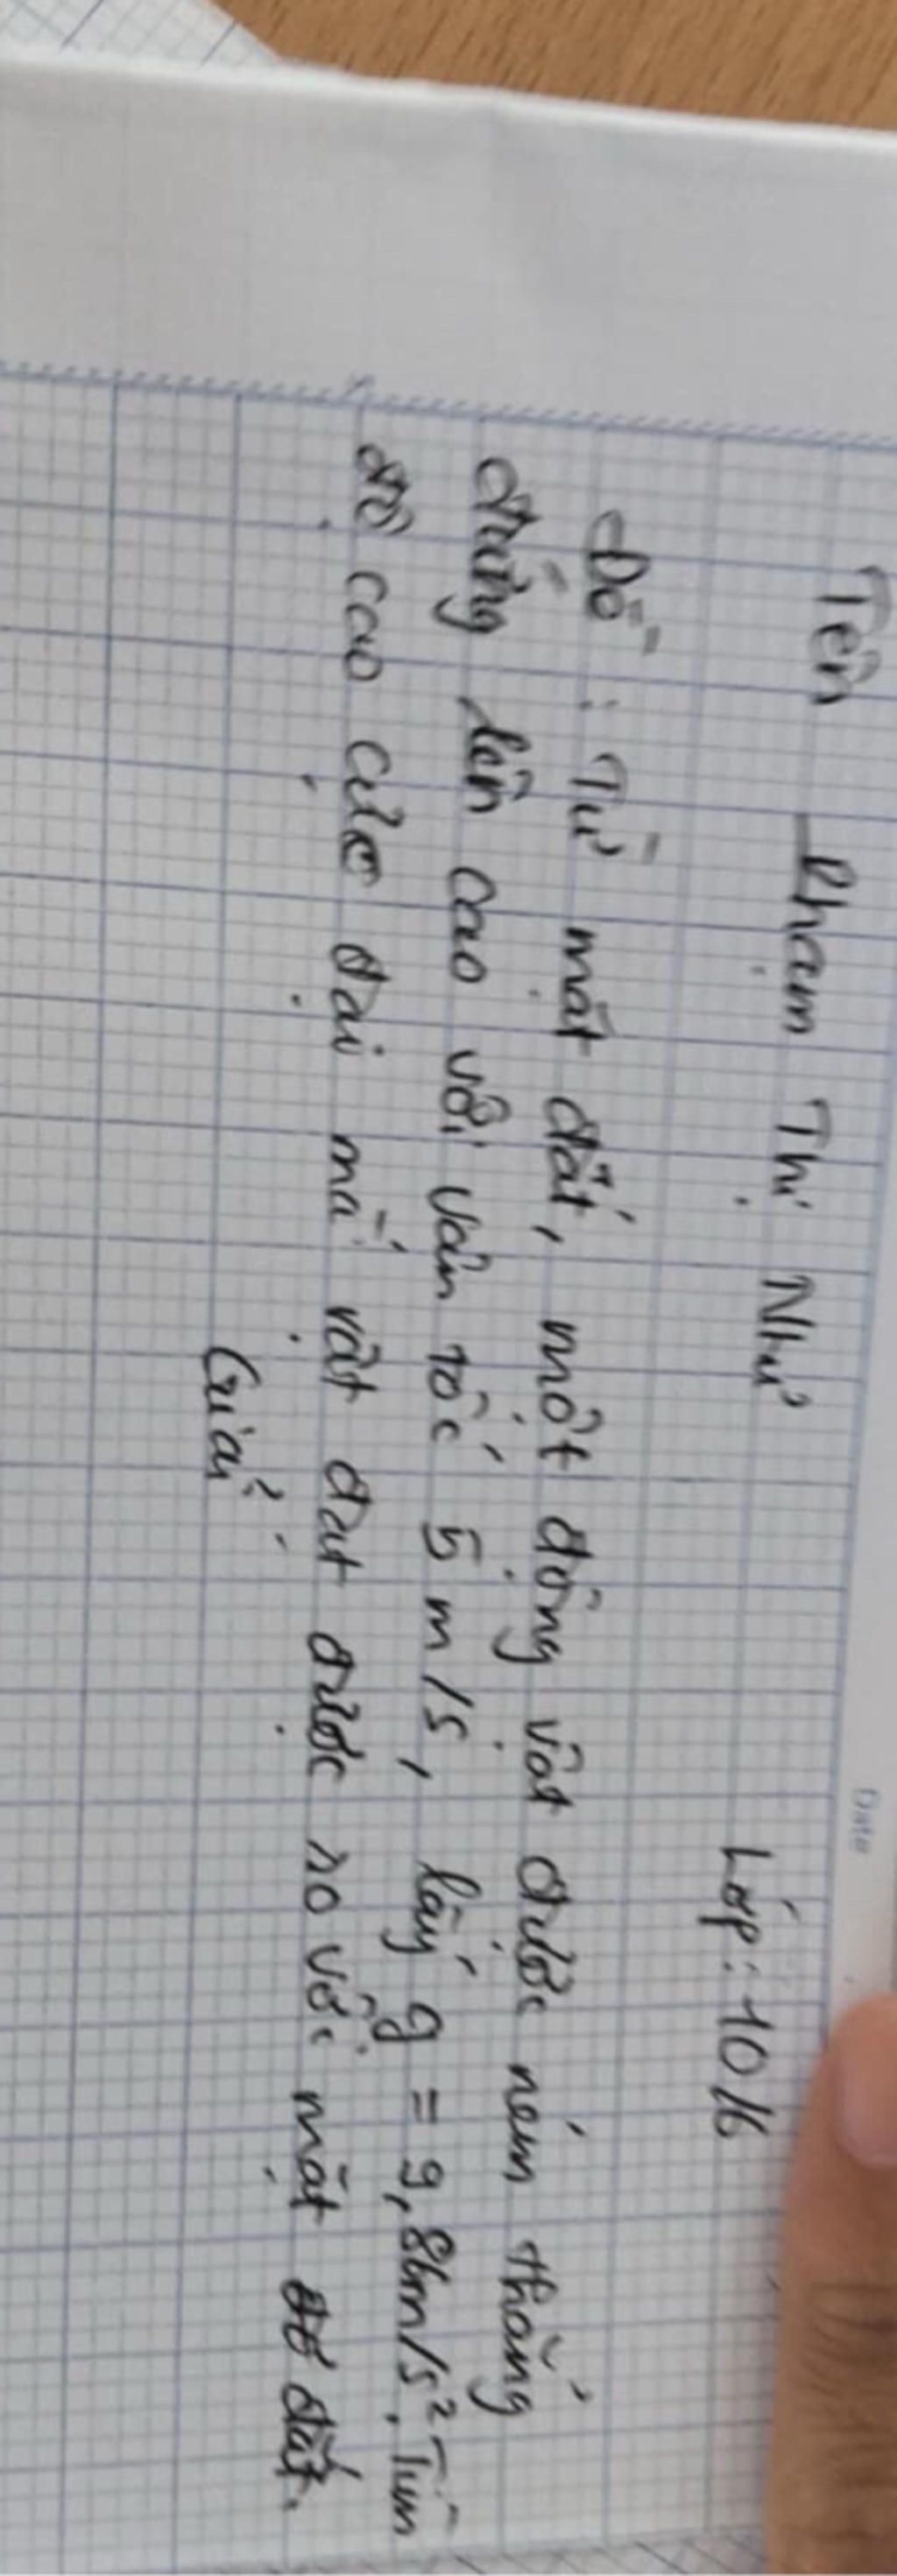 Date
Tên Phạm Thị Như Lớp: 10/6
Đề: Từ mặt đất, một động vật được ném thẳng
đứng lên cao với vận tốc 5 m/s, lấy g = 9,8 m/s². Tìm
độ cao cực đại mà vật đạt được so với mặt đất.
Giải